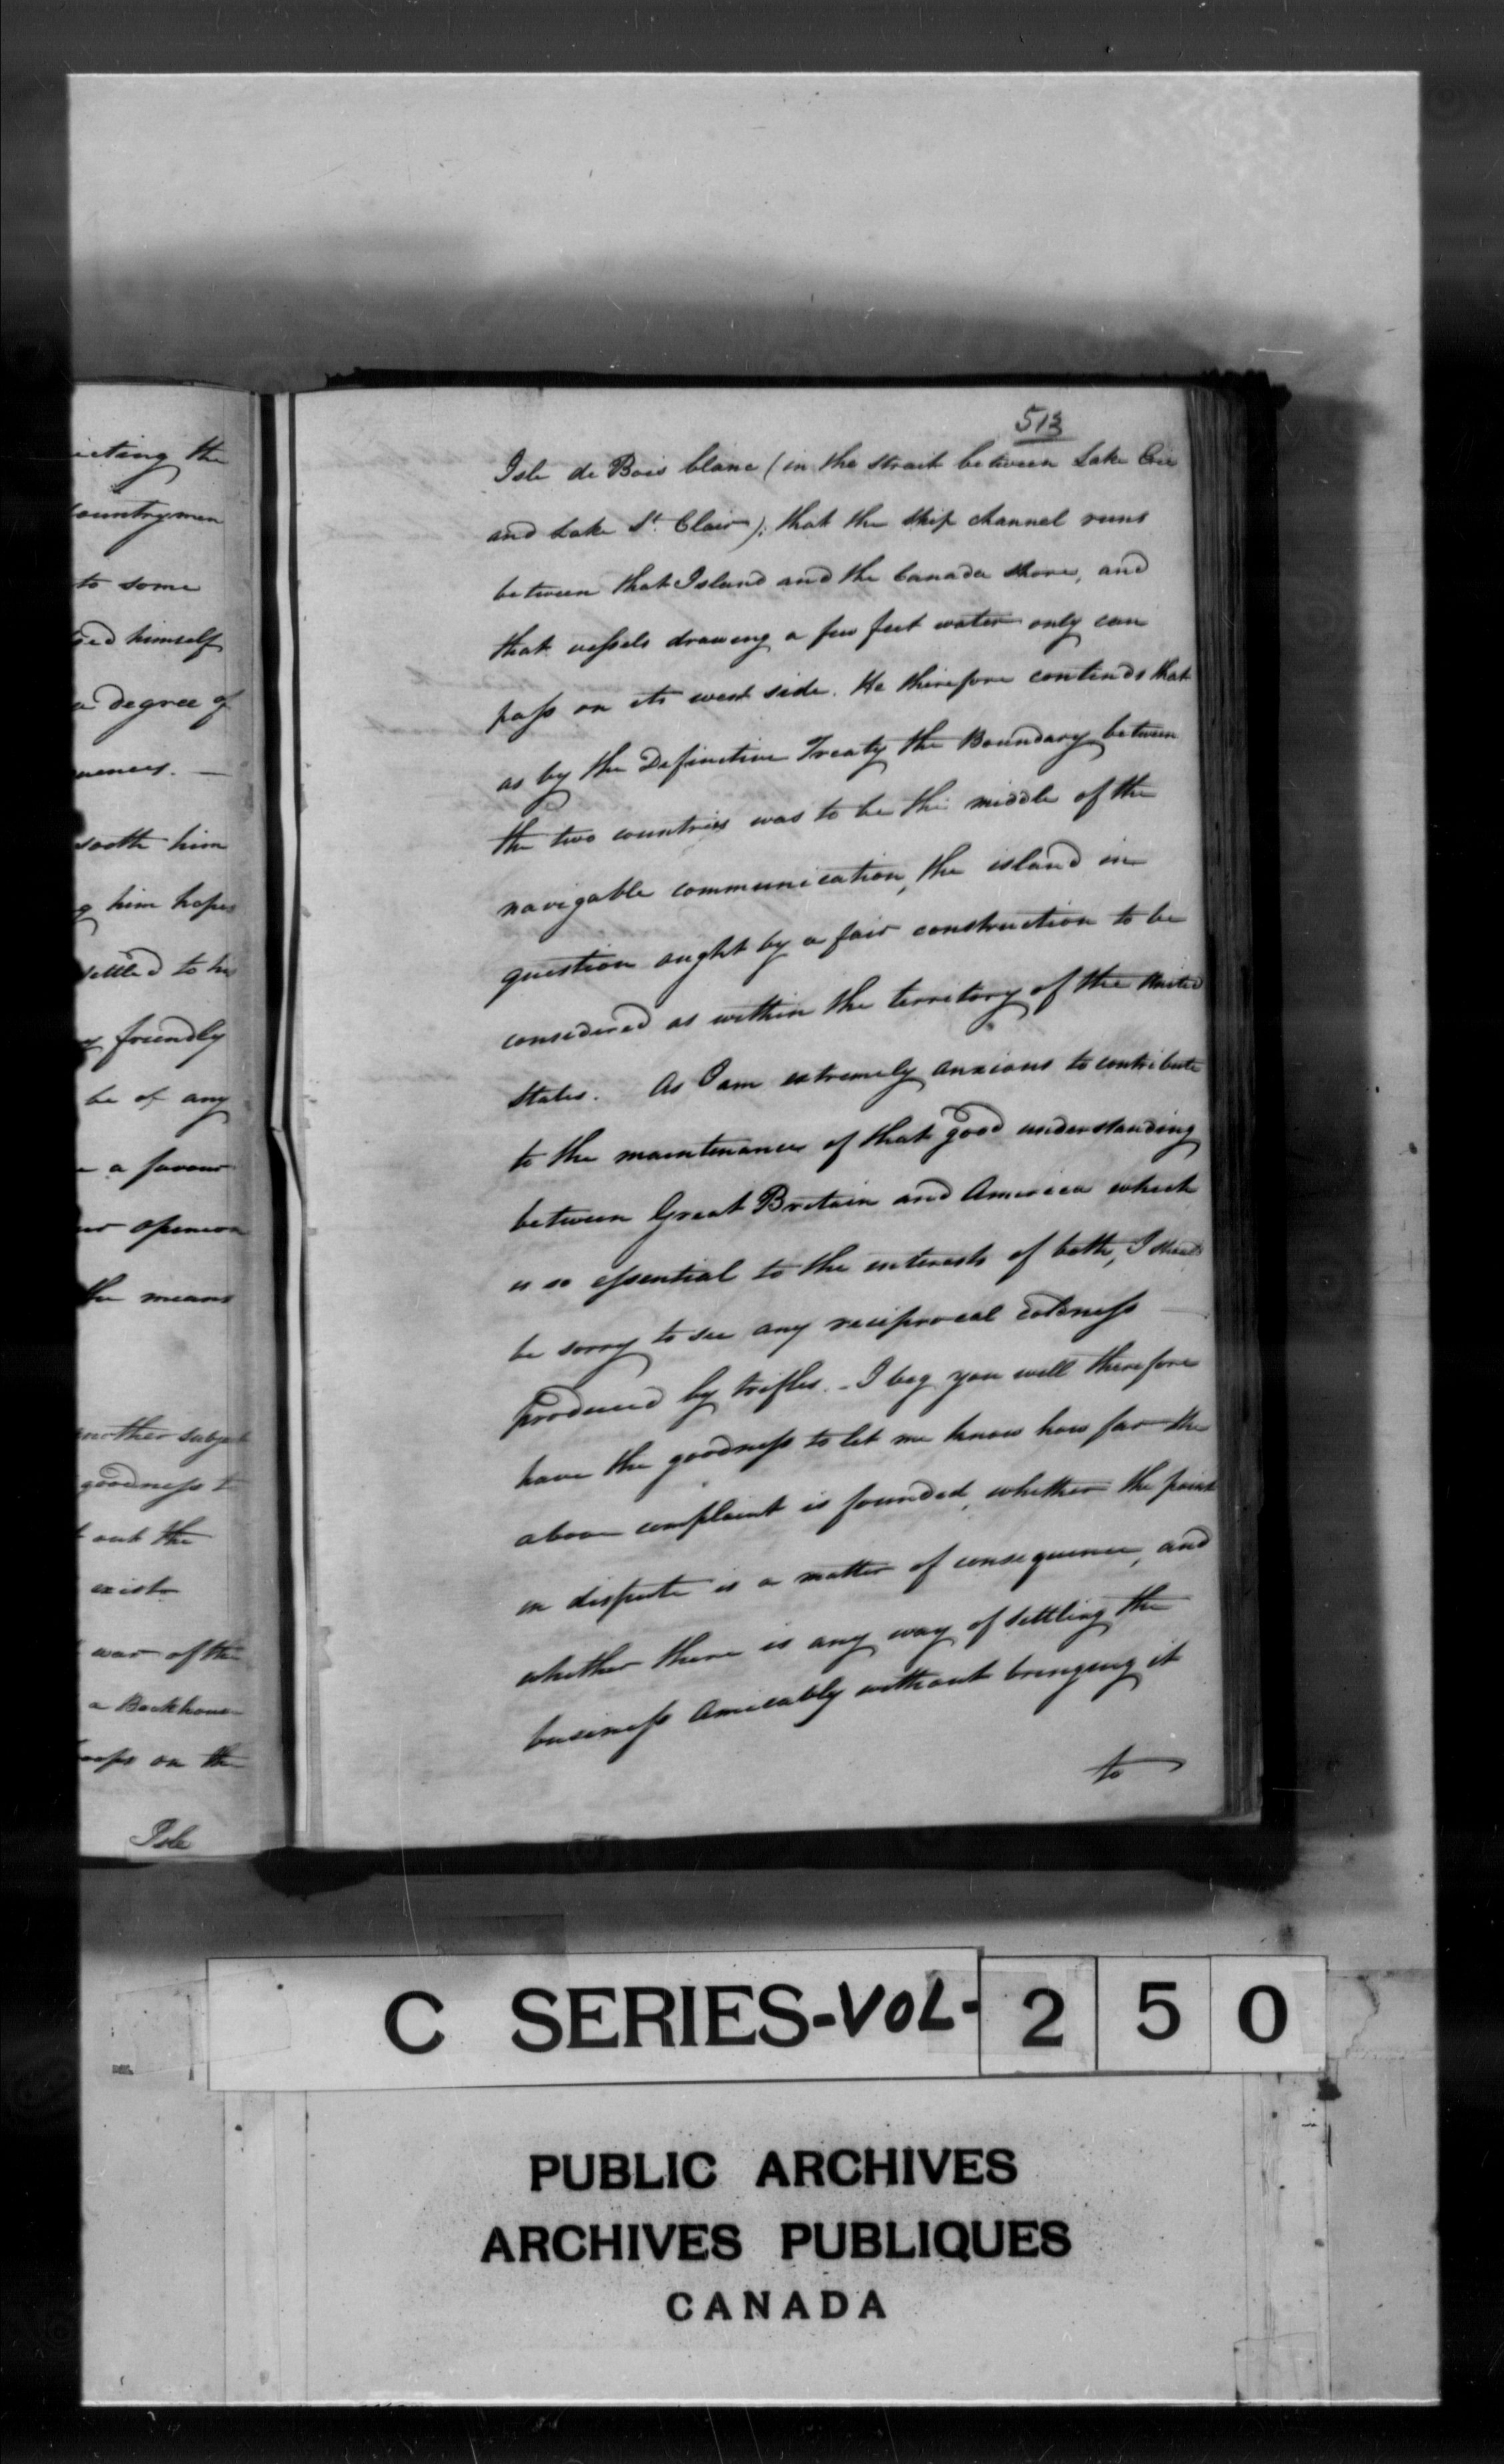 icting the
countrymen
to some
ed himself
a degree of
uences. —
sooth him
g him hopes
settled to his
y friendly
be of any
a favour
opinion
the means
another subject
goodness to
out the
exist
war of the
a Blockhouse
oops on the
Isle
513
Isle de Bois blanc (in the strait between Lake Erie
and Lake St. Clair); that the ship channel runs
between that Island and the Canada shore, and
that vessels drawing a few feet water only can
pass on its west side. He therefore contends that
as by the Definitive Treaty the Boundary between
the two countries was to be the middle of the
navigable communication, the island in
question ought by a fair construction to be
considered as within the territory of the United
States. As I am extremely anxious to contribute
to the maintenance of that good understanding
between Great Britain and America which
is so essential to the interests of both, I should
be sorry to see any reciprocal coldness
produced by trifles. - I beg you will therefore
have the goodness to let me know how far the
above complaint is founded, whether the point
in dispute is a matter of consequence, and
whether there is any way of settling the
business amicably without bringing it
to
C SERIES-VOL-250
PUBLIC ARCHIVES
ARCHIVES PUBLIQUES
CANADA